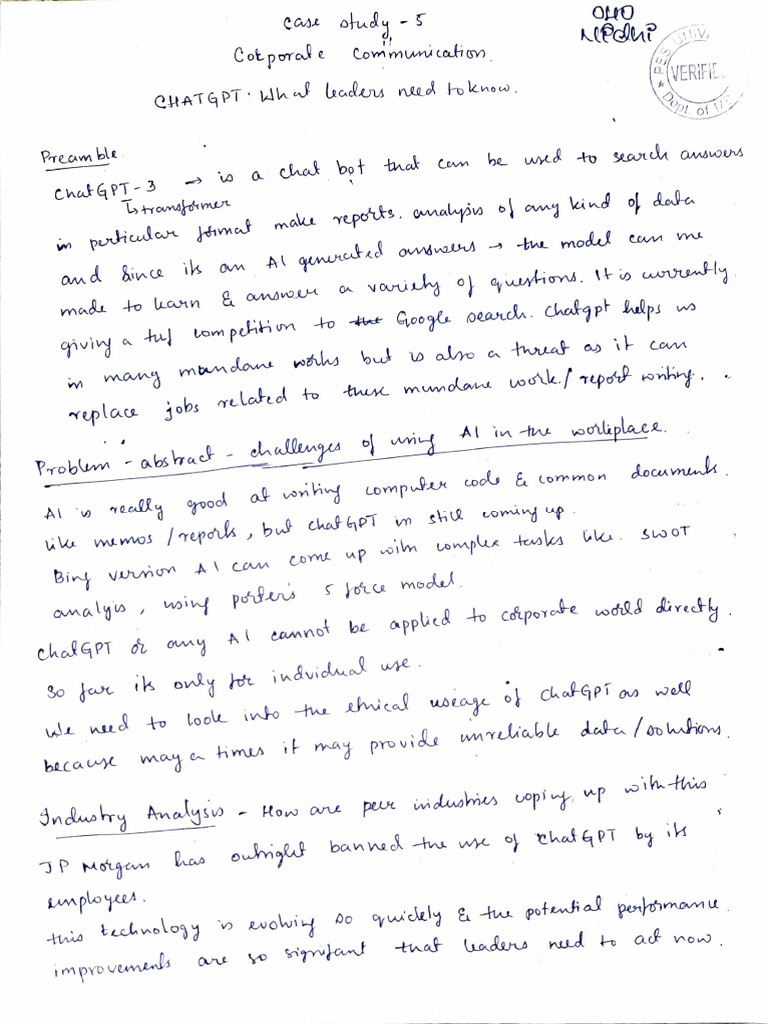 Case Study - 5
Corporate Communication.
CHATGPT: What leaders need to know.
PES UNIV
VERIFIE
Dept. of
Preamble
ChatGPT-3 → is a chat bot that can be used to search answers
↳ transformer
in particular format make reports. analysis of any kind of data
and Since its an AI generated answers → the model can me
made to learn & answer a variety of questions. It is currently
giving a tuf competition to the Google search. Chatgpt helps us
in many mundane works but is also a threat as it can
replace jobs related to these mundane work/report writing.
Problem - abstract - challenges of using AI in the workplace.
AI is really good at writing computer code & common documents
like memos/reports, but ChatGPT in still coming up.
Bing version AI can come up with complex tasks like. SWOT
analyis, using porter's 5 force model.
ChatGPT or any AI cannot be applied to corporate world directly.
So far its only for individual use.
We need to look into the ethical useage of ChatGPT as well
because may a times it may provide unreliable data/solutions.
Industry Analysis - How are peer industries coping up with this
JP Morgan has outright banned the use of ChatGPT by its
employees.
this technology is evolving so quickly & the potential performance
improvements are so signifant that leaders need to act now.